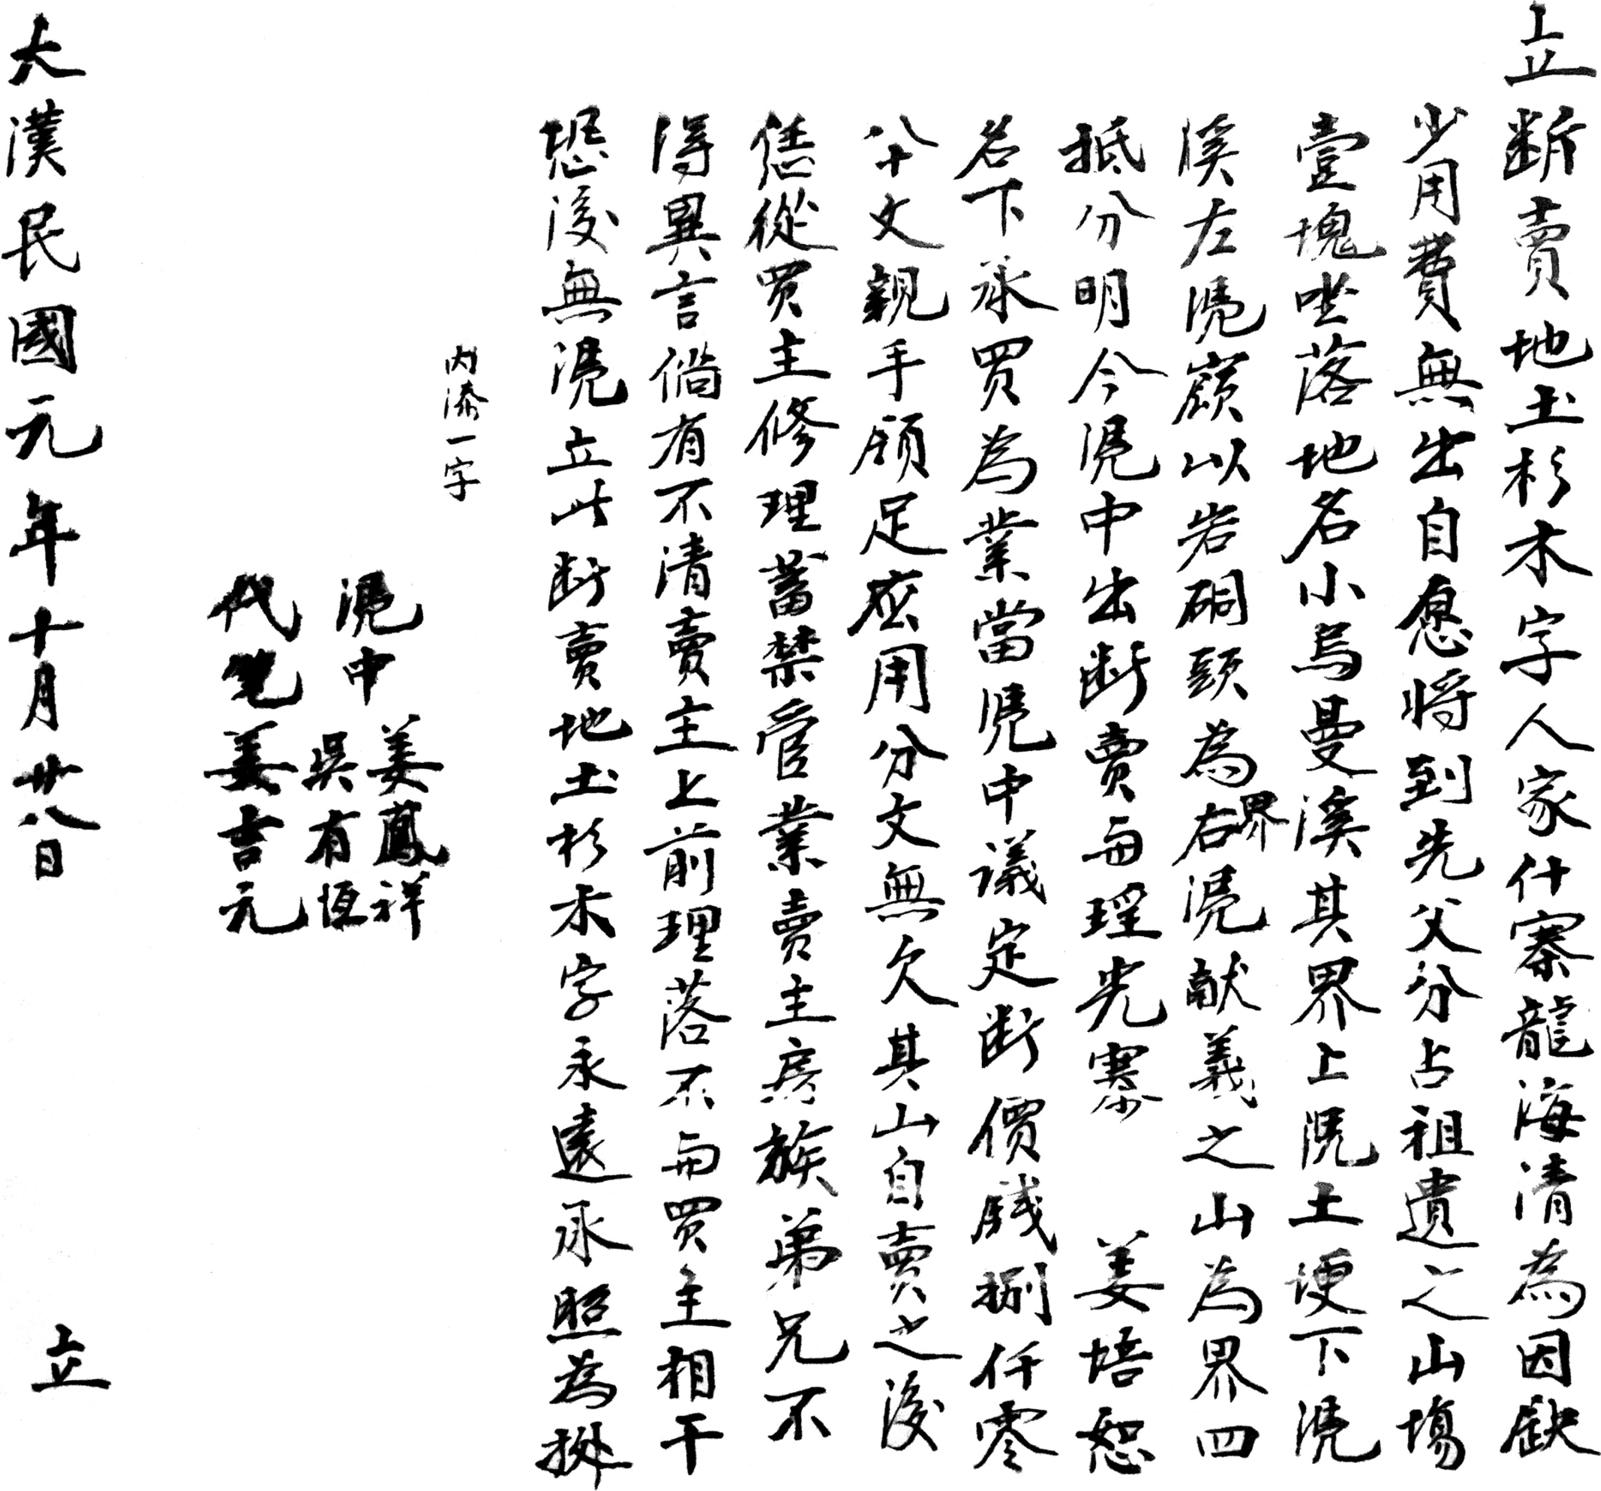 立断賣地土杉木字人家什寨龍海清為因缺
少用費無出自愿將到先父分占祖遺之山塲
壹塊坐落地名小烏曼溪其界上凴土埂下凴
溪左凴嶺以岩硐頭為界右凴献義之山為界四
抵分明今凴中出断賣与瑶光寨 姜培恕
名下承買為業當凴中議定断價錢捌仟零
八十文親手領足應用分文無欠其山自賣之後
恁從買主修理蓄禁管業賣主房族弟兄不
得異言倘有不清賣主上前理落不与買主相干
恐後無凴立此断賣地土杉木字永遠承照為據
内添一字
凴中 姜鳳祥
吳有恆
代筆姜吉元
大漢民國元年十月廿八日 立